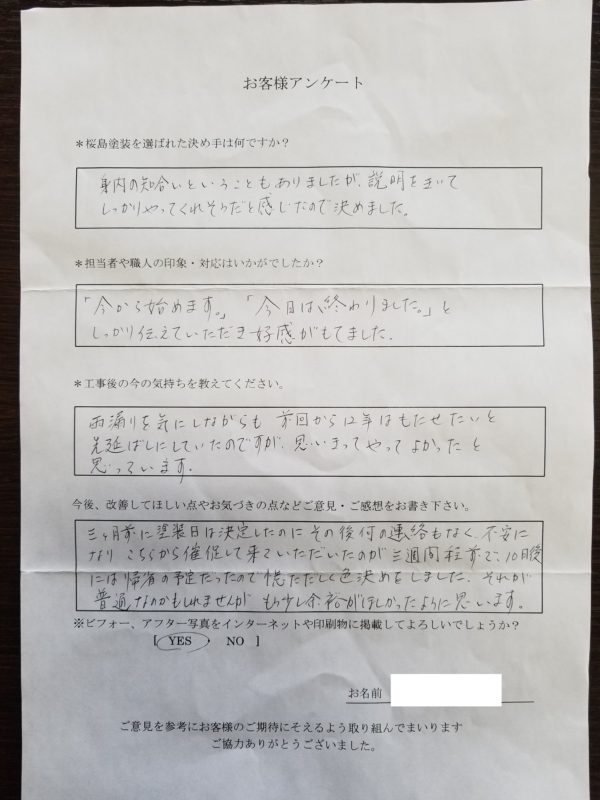 お客様アンケート
＊桜島塗装を選ばれた決め手は何ですか？
身内の知合いということもありましたが、説明をきいて
しっかりやってくれそうだと感じたので決めました。
＊担当者や職人の印象・対応はいかがでしたか？
「今から始めます。」「今日は、終わりました。」と
しっかり伝えていただき好感がもてました.
＊工事後の今の気持ちを教えてください。
雨漏りを気にしながらも 前回から12年はもたせたいと
先延ばしにしていたのですが、思いきってやって よかったと
思っています.
今後、改善してほしい点やお気づきの点などご意見・ご感想をお書き下さい。
三ヶ月前に塗装日は決定したのに その後何の連絡もなく、不安に
なり こちらから催促して来ていただいたのが 三週間程前で、10日後
には帰省の予定だったので慌ただしく色決めをしました. それが
普通なのかもしれませんが もう少し余裕がほしかったように思います。
※ビフォー、アフター写真をインターネットや印刷物に掲載してよろしいでしょうか？
[ YES NO ]
お名前
ご意見を参考にお客様のご期待にそえるよう取り組んでまいります
ご協力ありがとうございました。